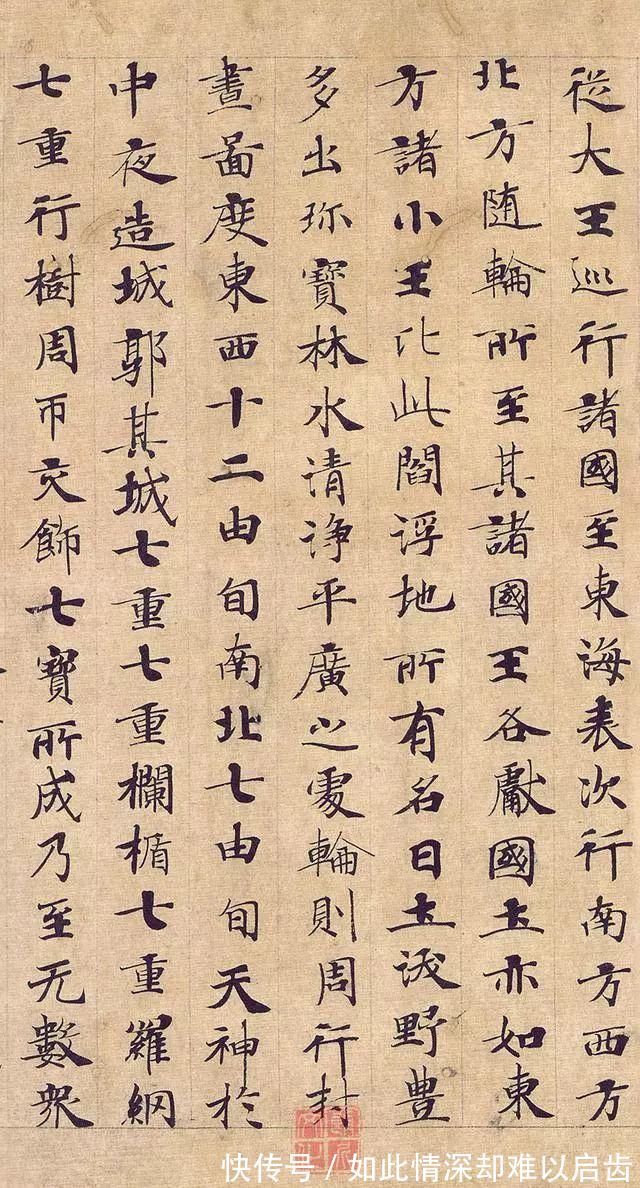 從大王巡行諸國至東海表次行南方西方
北方随輪所至其諸國王各獻國土亦如東
方諸小王比此閻浮地所有名曰土沃野豊
多出珎寳林水清浄平廣之處輪則周行封
畫啚度東西十二由旬南北七由旬天神於
中夜造城郭其城七重七重欄楯七重羅網
七重行樹周帀交飾七寳所成乃至无數衆
快传号 / 如此情深却难以启齿